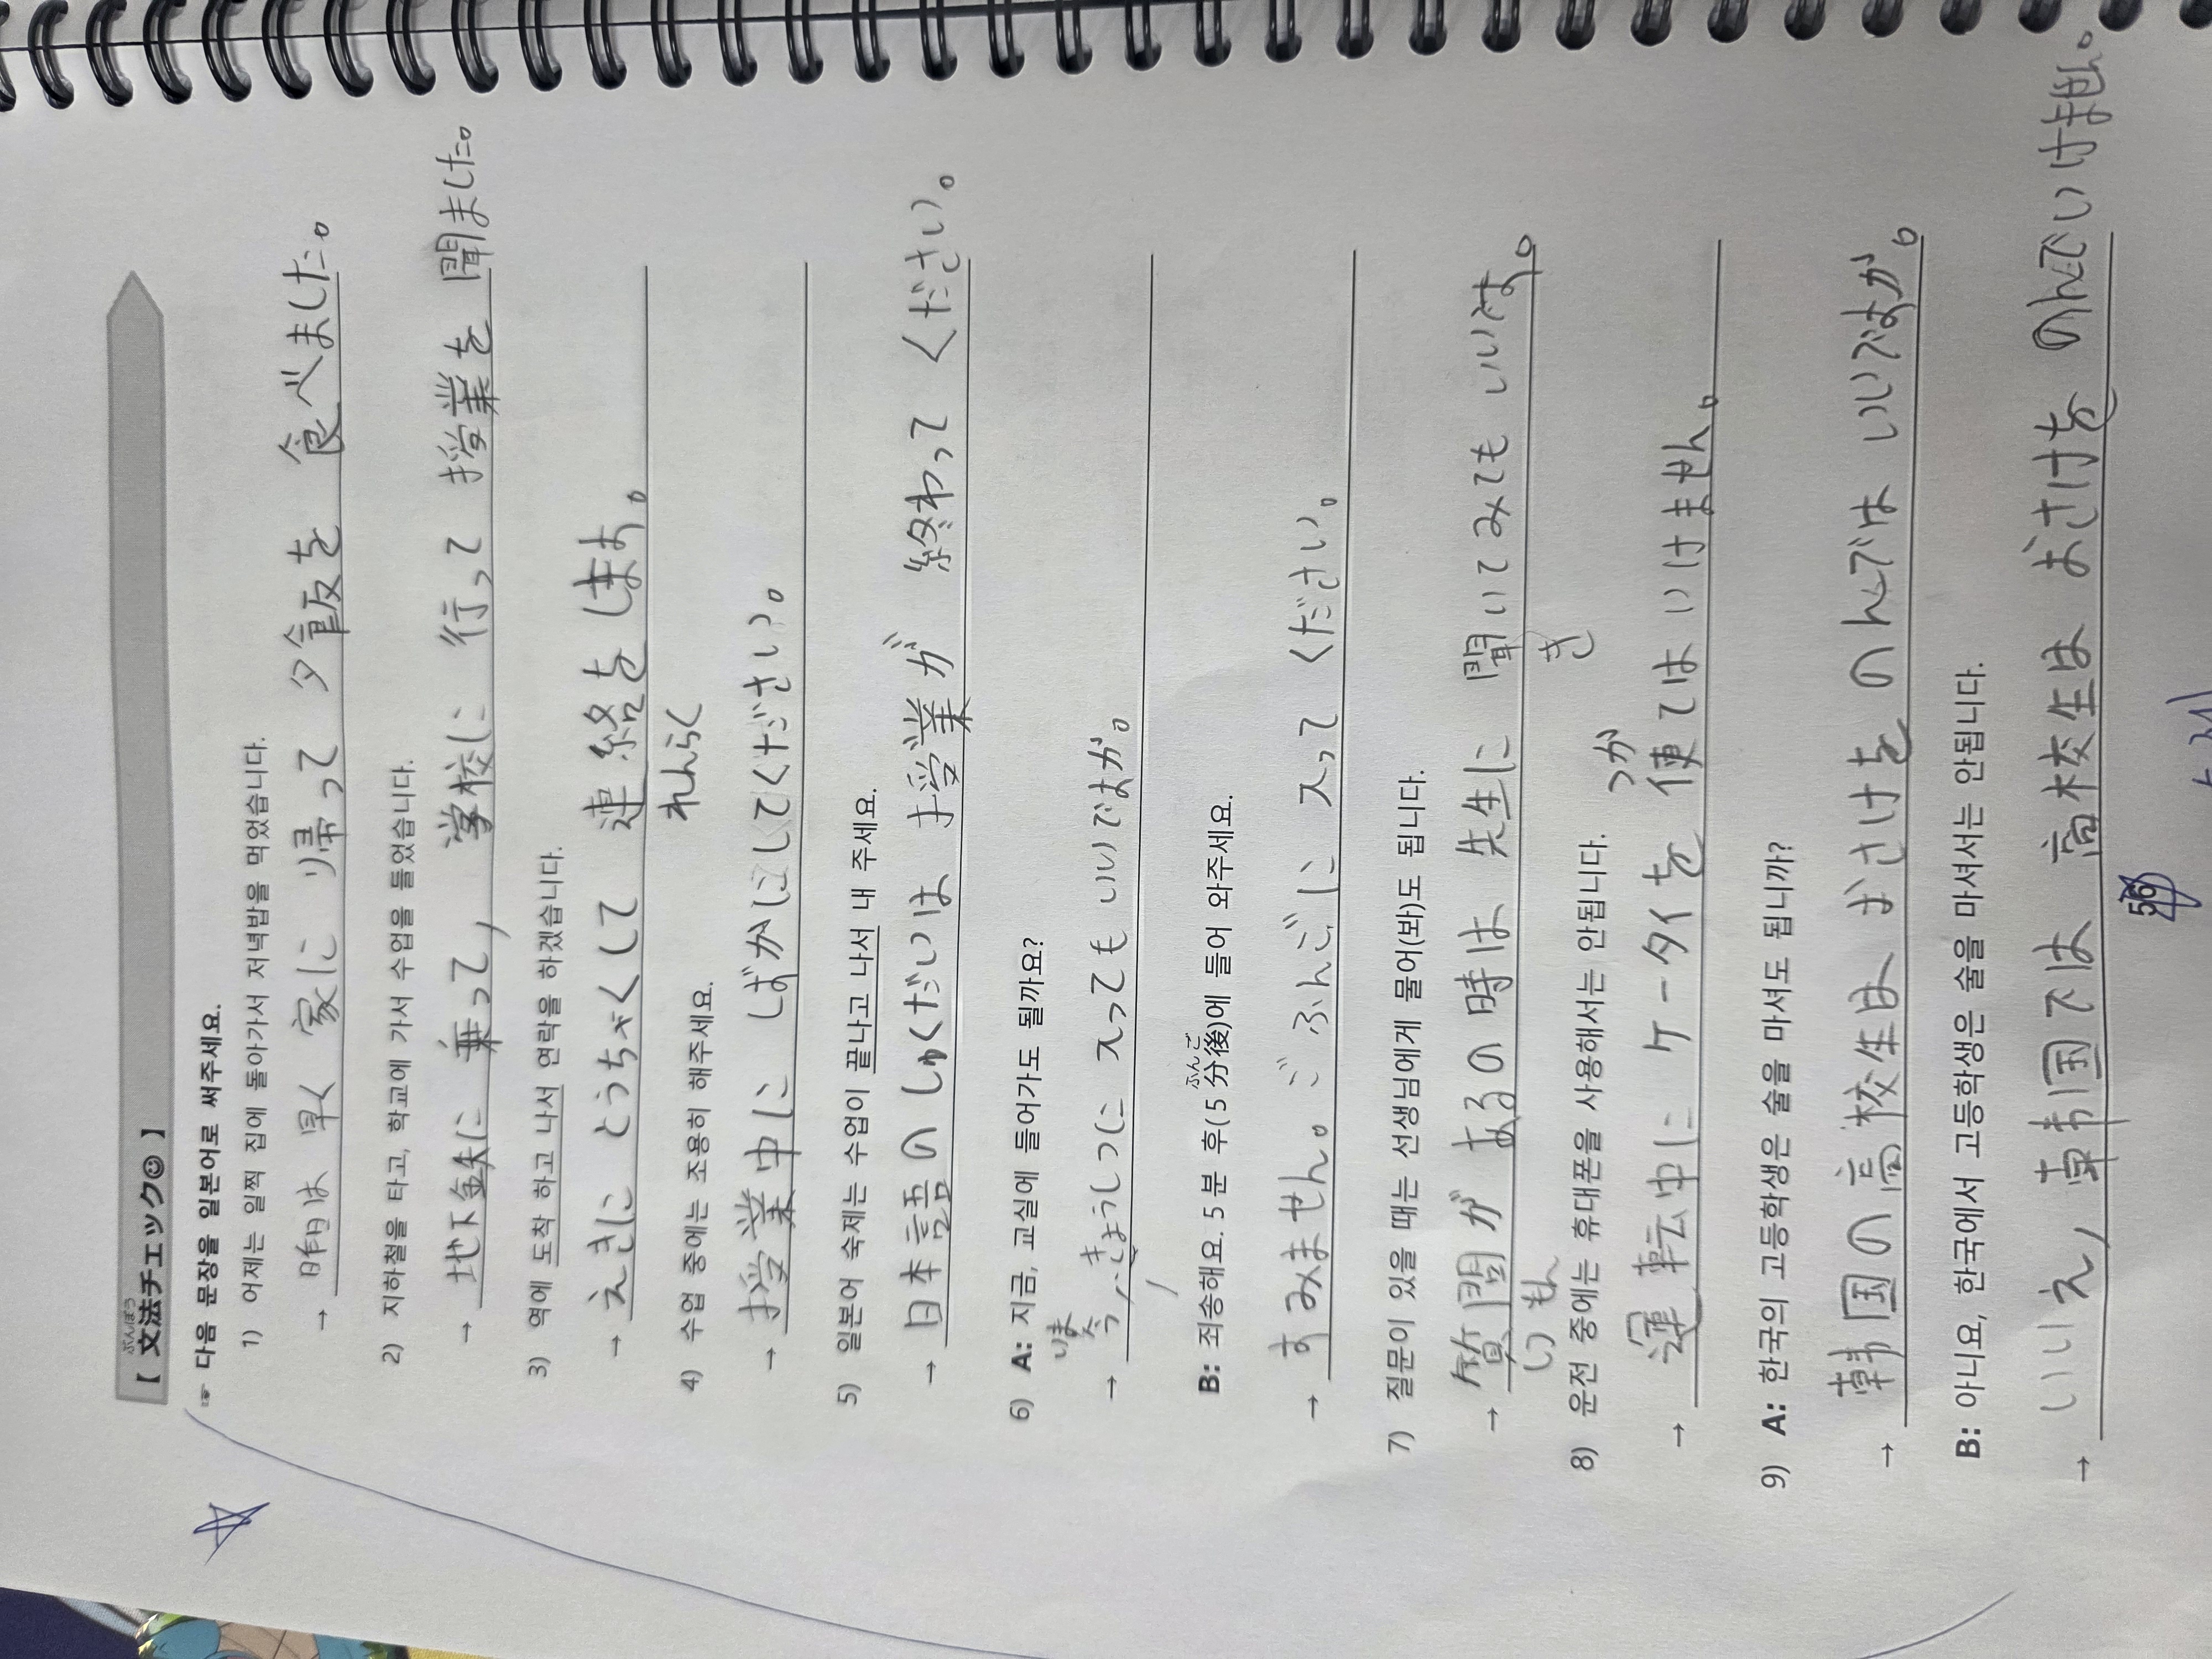 ぶんぽう
【 文法チェック☺ 】
☞ 다음 문장을 일본어로 써주세요.
1) 어제는 일찍 집에 돌아가서 저녁밥을 먹었습니다.
→ 昨日は 早く 家に 帰って 夕飯を 食べました。
2) 지하철을 타고, 학교에 가서 수업을 들었습니다.
→ 地下鉄に 乗って, 学校に 行って 授業を 聞ました。
3) 역에 도착 하고 나서 연락을 하겠습니다.
→ えきに とうちゃくして 連絡を します。
れんらく
4) 수업 중에는 조용히 해주세요.
→ 授業中に しばかにしてください。
5) 일본어 숙제는 수업이 끝나고 나서 내 주세요.
→ 日本語の しゅくだいは 授業が 終わって ください。
6) A: 지금, 교실에 들어가도 될까요?
いま
→ 今, きょうしつに 入っても いいですか。
B: 죄송해요. 5 분 후(5 分後)에 들어 와주세요.
ふんご
→ すみません。ごふんごに 入って ください。
7) 질문이 있을 때는 선생님에게 물어(봐)도 됩니다.
→ 質問が あるの時は 先生に 聞いてみても いいです。
しつもん き
8) 운전 중에는 휴대폰을 사용해서는 안됩니다.
つか
→ 運転中に ケータイを 使ては いけません。
9) A: 한국의 고등학생은 술을 마셔도 됩니까?
→ 韓国の高校生は おさけを のんでは いいですか。
B: 아니요, 한국에서 고등학생은 술을 마셔서는 안됩니다.
→ いいえ, 韓国では 高校生は おさけを のんでいけません。
56